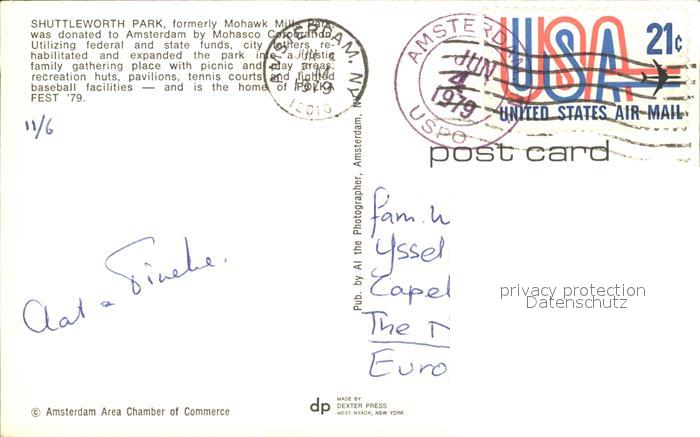 SHUTTLEWORTH PARK, formerly Mohawk Mills Park,
was donated to Amsterdam by Mohasco Corporation.
Utilizing federal and state funds, city fathers re-
habilitated and expanded the park into a
family gathering place with picnic and play areas,
recreation huts, pavilions, tennis courts and lighted
baseball facilities — and is the home of POLKA
FEST '79.
11/6
Aat - Tineke.
© Amsterdam Area Chamber of Commerce
AMSTERDAM, NY
JUN
1979
12010
Pub. by Al the Photographer, Amsterdam, N
dp
MADE BY
DEXTER PRESS
WEST NYACK, NEW YORK
AMSTERDAM
JUN
4
1979
USPO
USA
21c
UNITED STATES AIR MAIL
post card
fam.
Yssel
Capel
The
Euro
privacy protection
Datenschutz